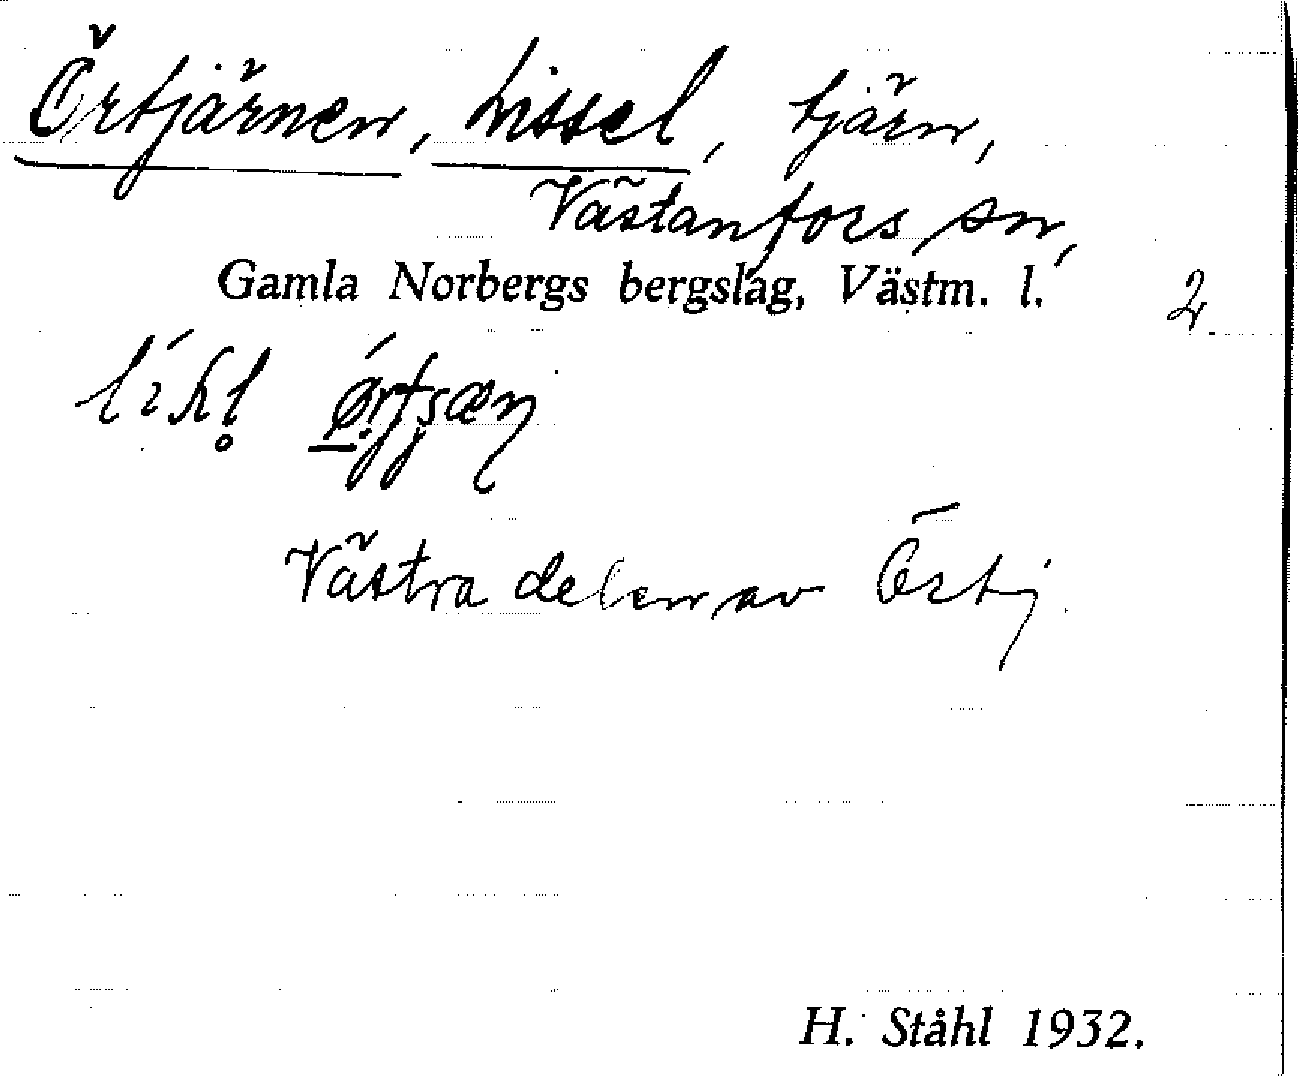 Örtjärnen, Lissel, tjärn,
Västanfors sn,
Gamla Norbergs bergslag, Västm. l.
2
Västra delen av Örtj
H. Ståhl 1932.